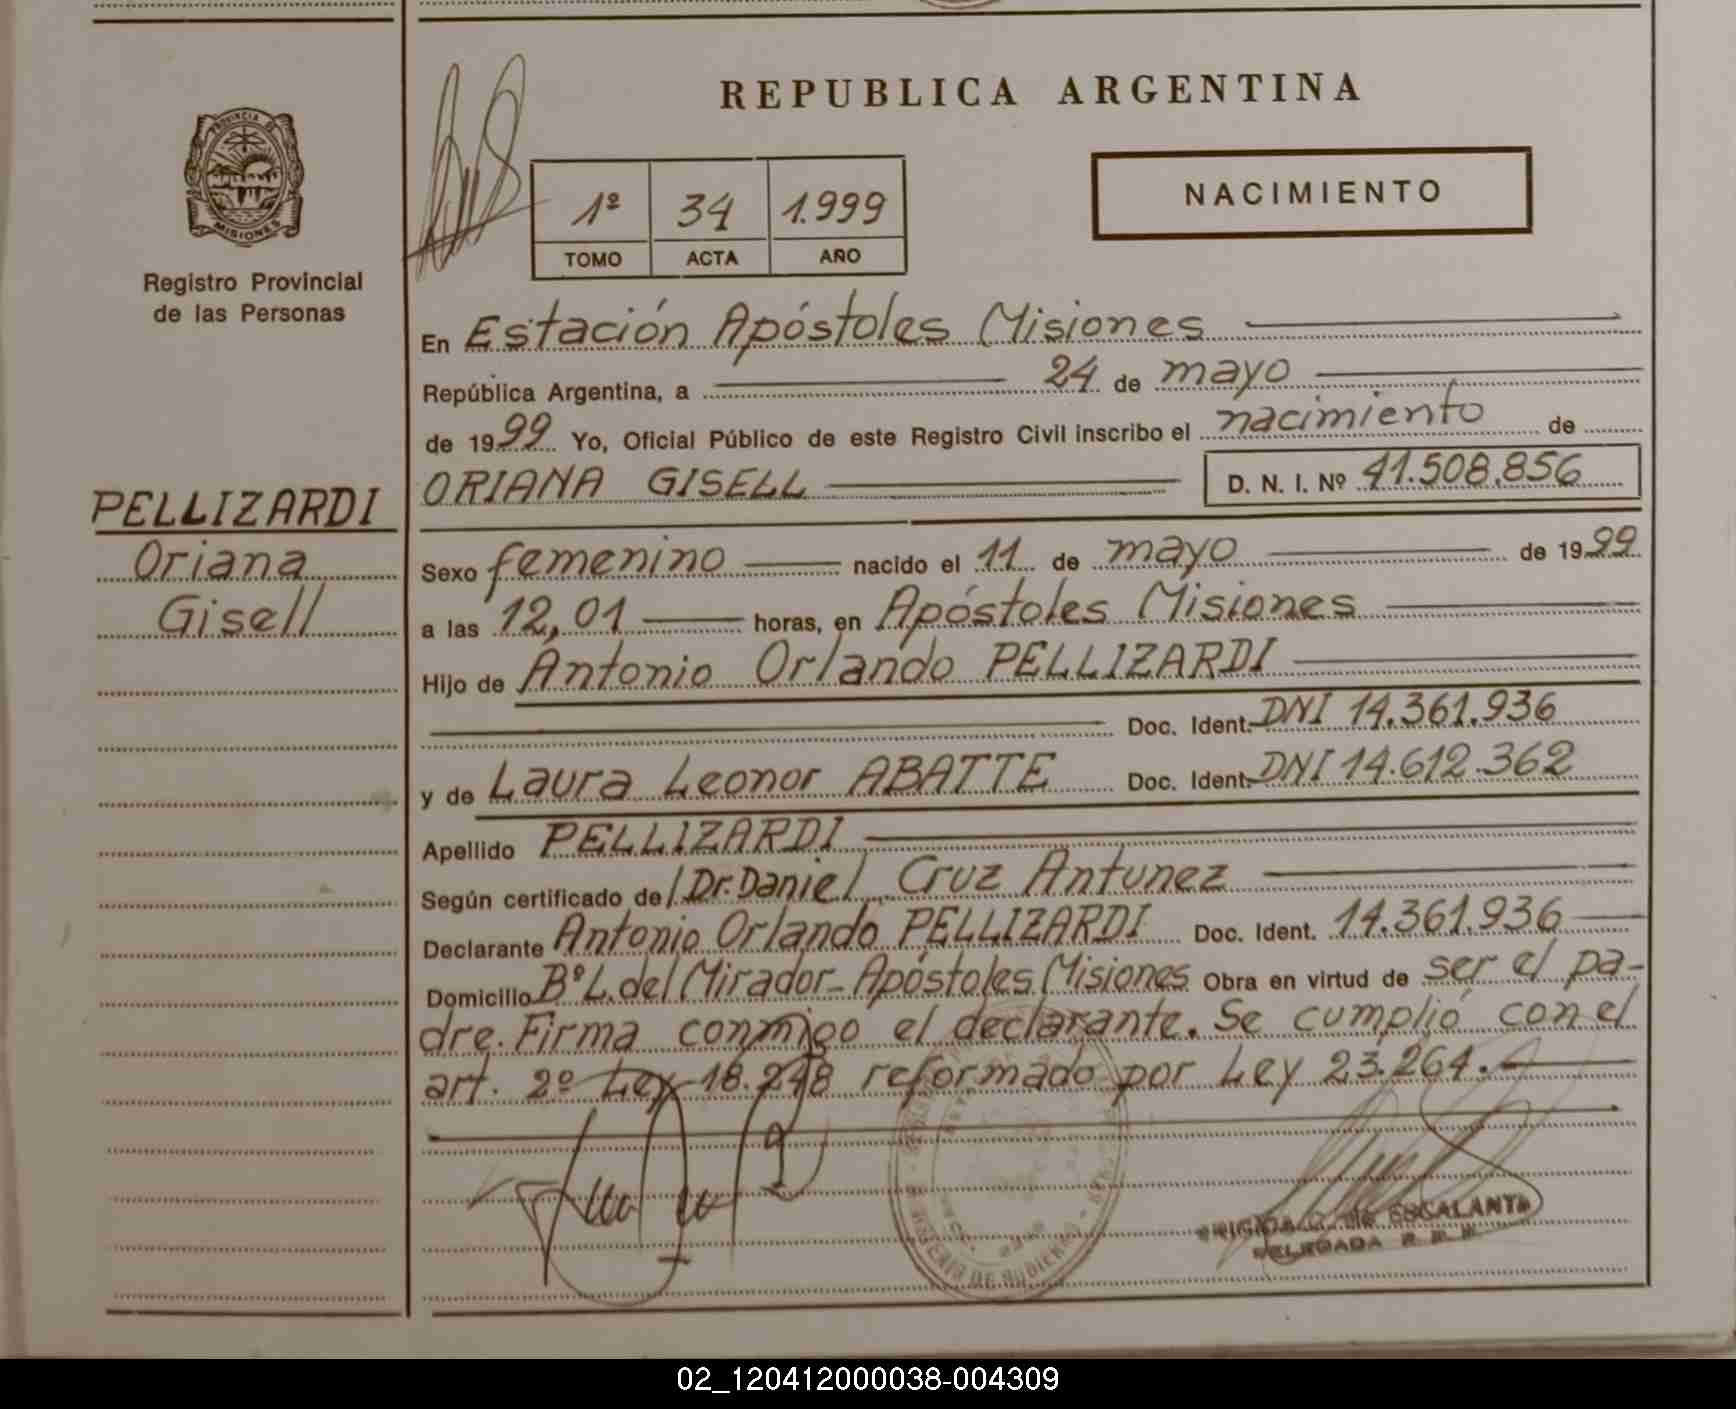 REPUBLICA ARGENTINA
PROVINCIA DE
MISIONES
Registro Provincial
de las Personas
NACIMIENTO
1º 34 1.999
TOMO ACTA AÑO
En Estación Apóstoles Misiones
República Argentina, a 24 de mayo
de 1999 Yo, Oficial Público de este Registro Civil inscribo el nacimiento de
ORIANA GISELL D. N. I. Nº 41.508.856
PELLIZARDI
Oriana
Gisell
Sexo femenino nacido el 11 de mayo de 1999
a las 12,01 horas, en Apóstoles Misiones
Hijo de Antonio Orlando PELLIZARDI
Doc. Ident. DNI 14.361.936
y de Laura Leonor ABATTE Doc. Ident. DNI 14.612.362
Apellido PELLIZARDI
Según certificado de Dr. Daniel Cruz Antunez
Declarante Antonio Orlando PELLIZARDI Doc. Ident. 14.361.936
Domicilio Bº L. del Mirador - Apóstoles Misiones Obra en virtud de ser el pa-
dre. Firma conmigo el declarante. Se cumplió con el
art. 2º Ley 18.248 reformado por Ley 23.264.
DE ESCALANTE
DELEGADA
02_120412000038-004309